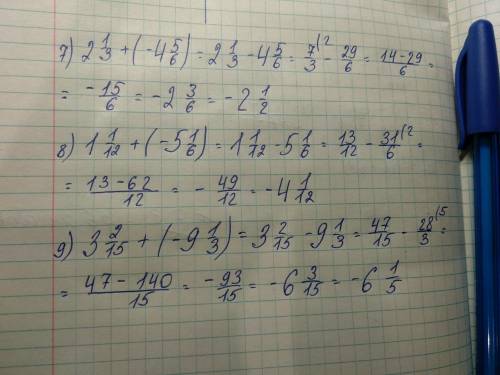 7) 2 1/3 + (-4 5/6) = 2 1/3 - 4 5/6 = 7/3 (2 - 29/6 = 14-29/6 =
= -15/6 = -2 3/6 = -2 1/2
8) 1 1/12 + (-5 1/6) = 1 1/12 - 5 1/6 = 13/12 - 31/6 (2 =
= 13-62/12 = - 49/12 = -4 1/12
9) 3 2/15 + (-9 1/3) = 3 2/15 - 9 1/3 = 47/15 - 28/3 (5 =
= 47-140/15 = -93/15 = -6 3/15 = -6 1/5